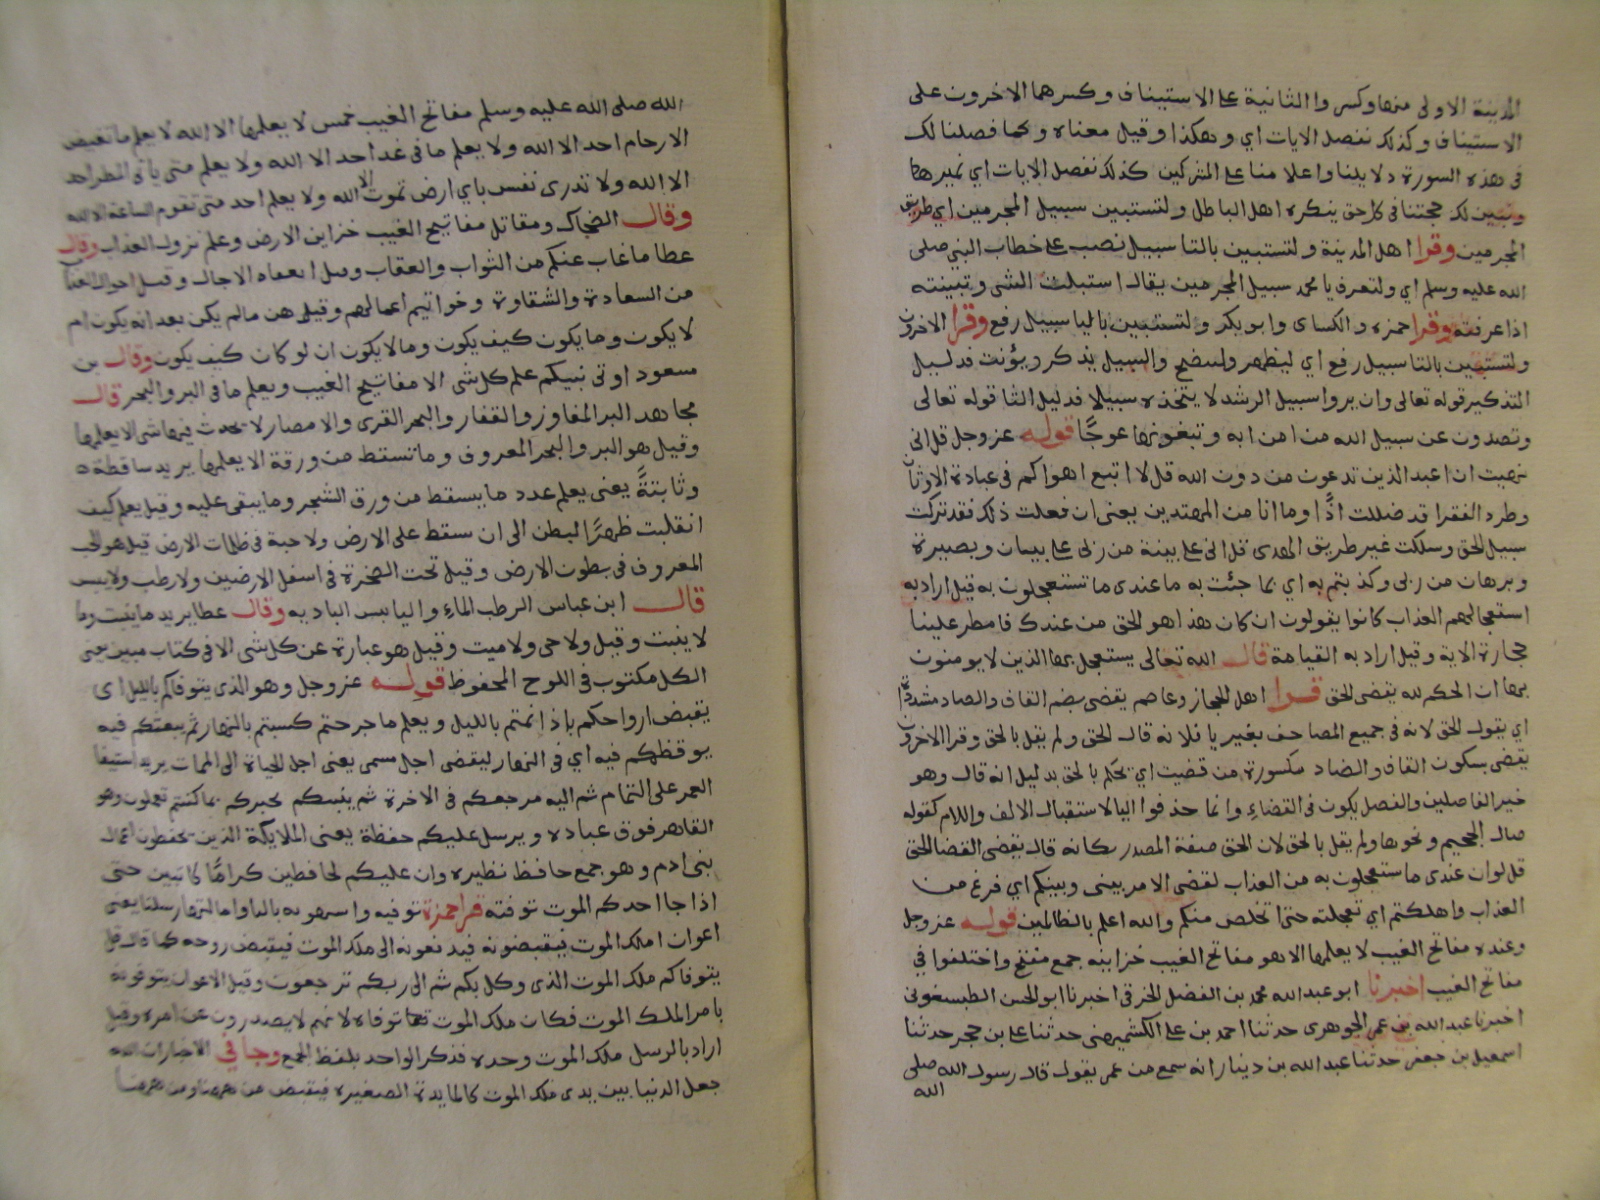 المدينة الاولى منهما وكسر والثانية على الاستيناف وكسرهما الاخرون على
الاستيناف وكذلك نفصل الايات اي وهكذا وقيل معناه وكما فصلنا لك
في هذه السورة دلايلنا واعلامنا على المشركين كذلك نفصل الايات اي نميزها
ونبين لك حجتنا في كل حق ينكره اهل الباطل ولتستبين سبيل المجرمين اي طريق
المجرمين وقرا اهل المدينة ولتستبين بالتا سبيل نصب على خطاب النبي صلى
الله عليه وسلم اي ولتعرف يا محمد سبيل المجرمين يقال استبنت الشي وتبينته
اذا عرفته وقرا حمزه والكساى وابو بكر ولتستبين باليا سبيل رفع وقرا الاخرون
ولتستبين بالتا سبيل رفع اي ليظهر وليتضح والسبيل يذكر ويؤنث فدليل
التذكير قوله تعالى وان يروا سبيل الرشد لا يتخذه سبيلا فدليل التا قوله تعالى
وتصدون عن سبيل الله من امن به وتبغونها عوجًا قوله عز وجل قل انى
نهيت ان اعبد الذين تدعون من دون الله قل لا اتبع اهواكم في عبادة الاوثان
وطرد الفقرا قد ضللت اذًا وما انا من المهتدين يعنى ان فعلت ذلك فقد تركت
سبيل الحق وسلكت غير طريق الهدى قل انى على بينة من ربى على بيان وبصيرة
وبرهان من ربى وكذبتم به اي بما جئت به ما عندى ما تستعجلون به قيل اراد به
استعجالهم العذاب كانوا يقولون ان كان هذا هو الحق من عندك فامطر علينا
حجارة الاية وقيل اراد به القيامة قال الله تعالى يستعجل بها الذين لا يومنون
بها ان الحكم لله يقضى الحق قرا اهل الحجاز وعاصم يقضى بضم القاف والصاد مشددة
اي يقول الحق لانه في جميع المصاحف بغير يا فلانه قال الحق ولم يقل بالحق وقرا الاخرون
يقضى بسكون القاف والضاد مكسورة من قضيت اي يحكم بالحق بدليل انه قال وهو
خير الفاصلين والفصل يكون في القضاء وانما حذفوا اليا لاستقبال الالف واللام كقوله
صال الجحيم ونحوها ولم يقل بالحق لان الحق صفة المصدر كانه قال يقضى القضا الحق
قل لو ان عندى ما تستعجلون به من العذاب لقضى الامر بينى وبينكم اي فرغ من
العذاب واهلكتم اي تعجلته حتى اتخلص منكم والله اعلم بالظالمين قوله عز وجل
وعنده مفاتح الغيب لا يعلمها الا هو مفاتح الغيب خزاينه جمع مفتح واختلفوا في
مفاتح الغيب اخبرنا ابو عبد الله محمد بن الفضل الخرقى اخبرنا ابو الحسن الطيسفونى
اخبرنا عبد الله بن عمر الجوهرى حدثنا احمد بن على الكشميهنى حدثنا على بن حجر حدثنا
اسمعيل بن جعفر حدثنا عبد الله بن دينار انه سمع من عمر يقول قال رسول الله صلى
الله
الله صلى الله عليه وسلم مفاتح الغيب خمس لا يعلمها الا الله لا يعلم ما تغيض
الارحام احد الا الله ولا يعلم ما في غد احد الا الله ولا يعلم متى ياتى المطر احد
الا الله ولا تدرى نفس باي ارض تموت الا الله ولا يعلم احد متى تقوم الساعة الا الله
وقال الضحاك ومقاتل مفاتيح الغيب خزاين الارض وعلم نزول العذاب وقال
عطا ما غاب عنكم من الثواب والعقاب وقيل انقضاء الاجال وقيل احوال العباد
من السعادة والشقاوة وخواتيم اعمالهم وقيل هن ما لم يكن بعد انه يكون ام
لا يكون وما يكون كيف يكون وما لا يكون ان لو كان كيف يكون وقال بن
مسعود اوتى نبيكم علم كل شى الا مفاتيح الغيب ويعلم ما في البر والبحر قال
مجاهد البر المفاوز والقفار والبحر القرى والامصار لا يحدث فيها شى الا يعلمها
وقيل هو البر والبحر المعروف وما تسقط من ورقة الا يعلمها يريد ساقطة
وثابتةً يعنى يعلم عدد ما يسقط من ورق الشجر وما يبقى عليه وقيل يعلم كيف
انقلبت ظهرًا لبطن الى ان سقط على الارض ولا حبة في ظلمات الارض قيل هو الحب
المعروف في بطون الارض وقيل تحت الصخرة في اسفل الارضين ولا رطب ولا يابس
قال ابن عباس الرطب الماء واليابس الباديه وقال عطا يريد ما ينبت وما
لا ينبت وقيل ولا حى ولا ميت وقيل هو عبارة عن كل شى الا في كتاب مبين يعنى
الكل مكتوب في اللوح المحفوظ قوله عز وجل وهو الذى يتوفاكم بالليل اى
يقبض ارواحكم باذا نمتم بالليل ويعلم ما جرحتم كسبتم بالنهار ثم يبعثكم فيه
يوقظكم فيه اي في النهار ليقضى اجل مسمى يعنى اجل الحياة الى الممات يريد استيفا
العمر على التمام ثم اليه مرجعكم في الاخرة ثم ينبئكم يخبركم بما كنتم تعملون وهو
القاهر فوق عباده ويرسل عليكم حفظة يعنى الملايكة الذين يحفظون اعمال
بنى ادم وهو جمع حافظ نظيره وان عليكم لحافظين كرامًا كاتبين حتى
اذا جا احدكم الموت توفته قرا حمزة توفيه واستهوته باليا وامالهما رسلنا يعنى
اعوان ملك الموت فيقبضونه فيدفعونه الى ملك الموت فيقبض روحه كما قال قل
يتوفاكم ملك الموت الذى وكل بكم ثم الى ربكم ترجعون وقيل الاعوان يتوفونه
بامر الملك الموت فكان ملك الموت توفاه لانهم لا يصدرون عن امره وقيل
اراد بالرسل ملك الموت وحده فذكر الواحد بلفظ الجمع وجا في الاخبار ان الله
جعل الدنيا بين يدى ملك الموت كالمايدة الصغيرة فيقبض من هاهنا ومن هاهنا